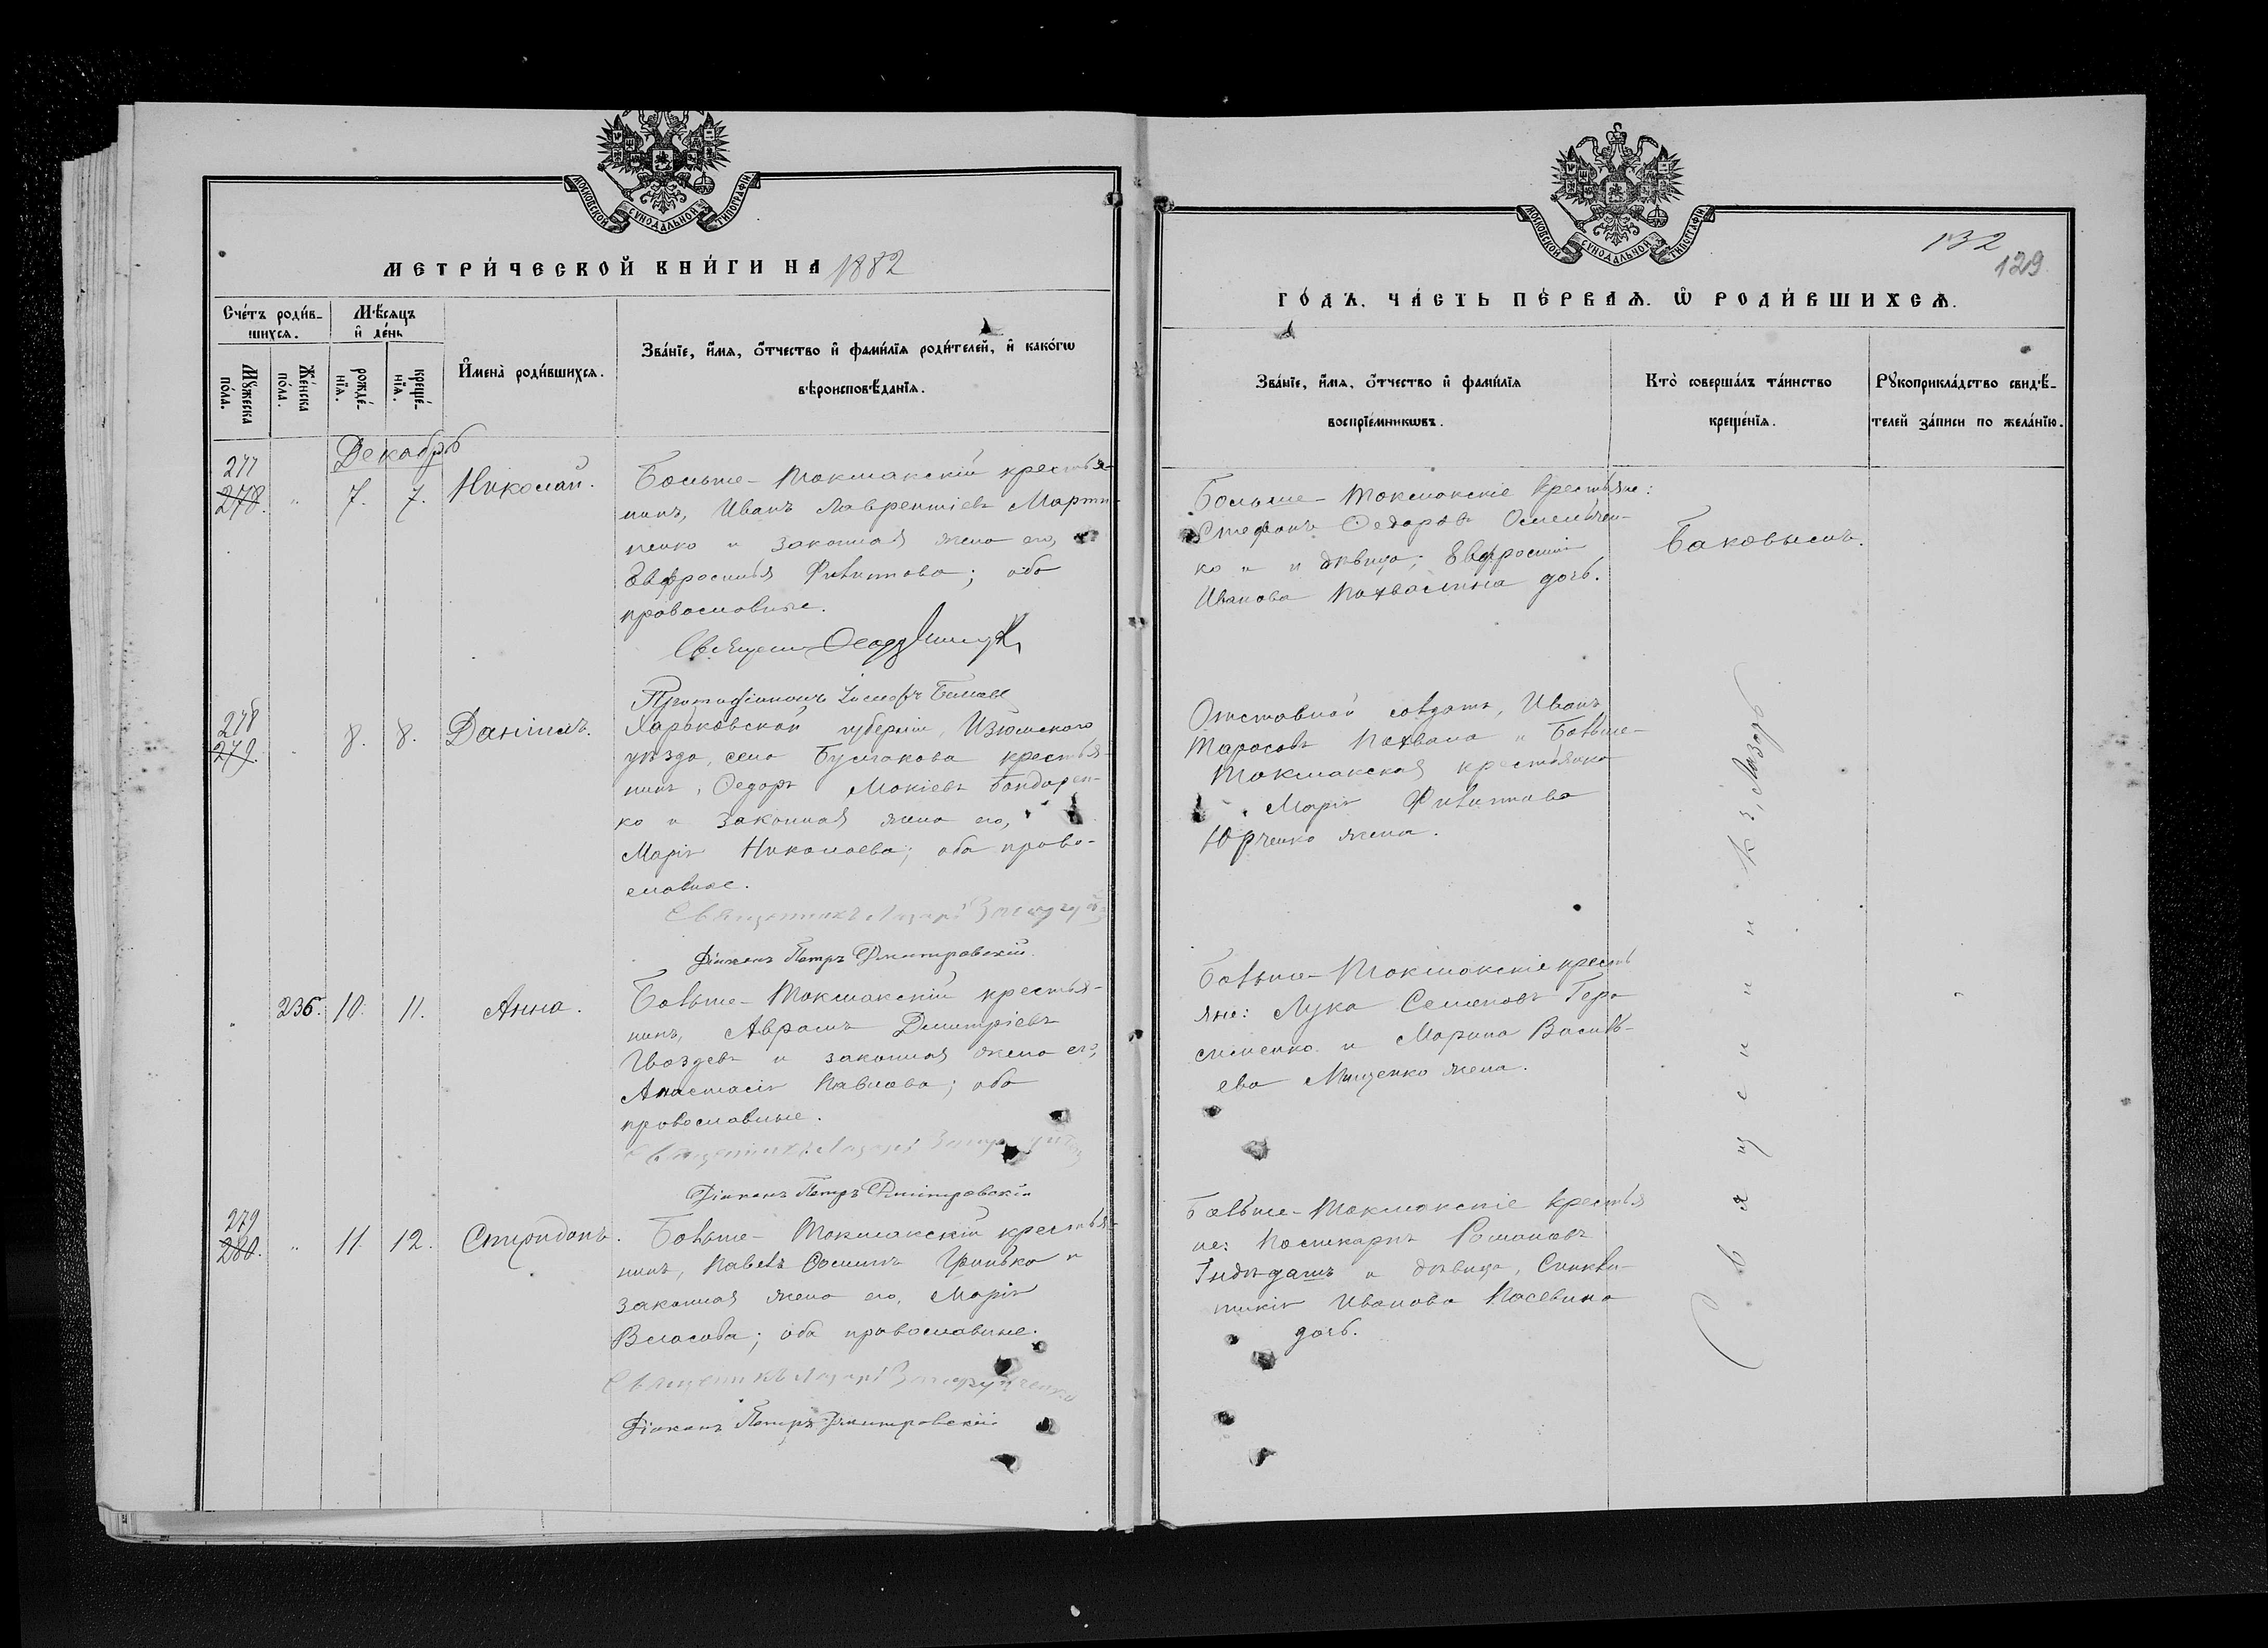 МОСКОВСКОЙ СѴНОДАЛЬНОЙ ТИПОГРАФІИ
МЕТРИ́ЧЕСКОЙ КНИ́ГИ НА 1882
Сче́тъ роди́в-
шихся.
Мѣ́сяцъ
и҆ де́нь
Мꙋ́жеска
по́ла.
Же́нска
по́ла.
рожде́-
нїѧ.
креще́-
нїѧ.
И҆мена̀ роди́вшихсѧ.
Зва́нїе, и҆́мѧ, ѻ҆́тчество и҆ фами́лїѧ роди́телей, и҆ како́гѡ
вѣроисповѣ́данїѧ.
Декабрь
277
278.
"
7.
7.
Николай.
Больше-Токмакскій крестья-
нинъ, Иванъ Лаврентіевъ Марти-
ненко и законная жена его,
Евфросинія Филиппова; оба
православные.
278
279.
8.
8.
Даніилъ.
Харьковской губерніи, Изюмского
уѣзда, села Бугаева крестья-
нинъ, Ѳедоръ Мокіевъ Бондарен-
ко и законная жена его,
Марія Николаева; оба право-
славные.
Священникъ Лазарь
Діаконъ Петръ Дмитровскій
236.
10.
11.
Анна.
Больше-Токмакскій крестья-
нинъ, Аврамъ Дмитріевъ
Гвоздевъ и законная жена его,
Анастасія Павлова; оба
православные.
Священникъ Лазарь
Діаконъ Петръ Дмитровскій
279
280.
"
11.
12.
Спиридонъ.
Больше-Токмакскій крестья-
нинъ, Павелъ Осиповъ Гринько и
законная жена его, Марія
Власова; оба православные.
Священникъ Лазарь
Діаконъ Петръ Дмитровскій
МОСКОВСКОЙ СѴНОДАЛЬНОЙ ТИПОГРАФІИ
132
129
ГО́ДЪ. ЧА́СТЬ ПЕ́РВАѦ. Ѽ РОДИ́ВШИХСѦ.
Зва́нїе, и҆́мѧ, ѻ҆́тчество и҆ фами́лїѧ
воспрїе́мникѡвъ.
Кто̀ соверша́лъ та́инство
креще́нїѧ.
Рꙋкоприкла́дство свидѣ́-
телей за́писи по жела́нїю.
Больше-Токмакскіе крестьяне:
Стефанъ Ѳедоровъ Омельчен-
ко и дѣвица, Евфросинія
Иванова Похвалина дочь.
Отставной солдатъ, Иванъ
Тарасовъ Похвала и Больше-
Токмакская крестьянка
Марія Филиппова
Юрченко жена.
Больше-Токмакскіе кресть
яне: Лука Семеновъ Гера
сименко и Марина Василь-
ева Мищенко жена.
Больше-Токмакскіе крестья
не: Поликарпъ Романовъ
и дѣвица, Синкли-
тикія Иванова
дочь.
Священникъ, Лазарь